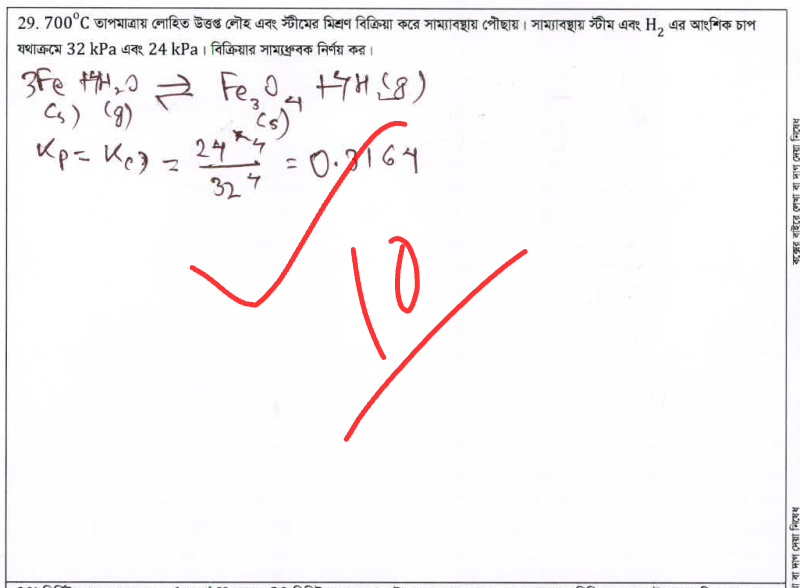 29. 700⁰C তাপমাত্রায় লোহিত উত্তপ্ত লৌহ এবং স্টীমের মিশ্রণ বিক্রিয়া করে সাম্যাবস্থায় পৌছায়। সাম্যাবস্থায় স্টীম এবং H₂ এর আংশিক চাপ
যথাক্রমে 32 kPa এবং 24 kPa। বিক্রিয়ার সাম্যধ্রুবক নির্ণয় কর।
3Fe + 4H₂O ⇌ Fe₃O₄ + 4H₂(g)
(s) (g) (s)
Kp = Kc = 24⁴ / 32⁴ = 0.3164
10
বক্সের বাইরে লেখা বা দাগ দেয়া নিষেধ
বা দাগ দেয়া নিষেধ